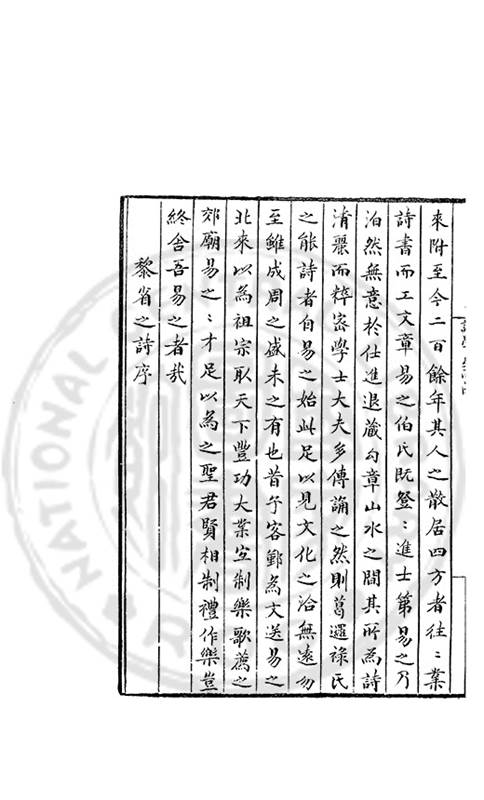 來附至今二百餘年其人之散居四方者往〻業
詩書而工文章易之伯氏既登〻進士第易之乃
泊然無意於仕進退藏勾章山水之間其所為詩
清麗而粹密學士大夫多傳誦之然則葛邏祿氏
之能詩者自易之始此足以見文化之洽無遠勿
至雖成周之盛未之有也昔予客鄞為文送易之
北來以為祖宗取天下豐功大業宜制樂歌薦之
郊廟易之〻才足以為之聖君賢相制禮作樂豈
終舍吾易之者哉
黎省之詩序
NATIONAL